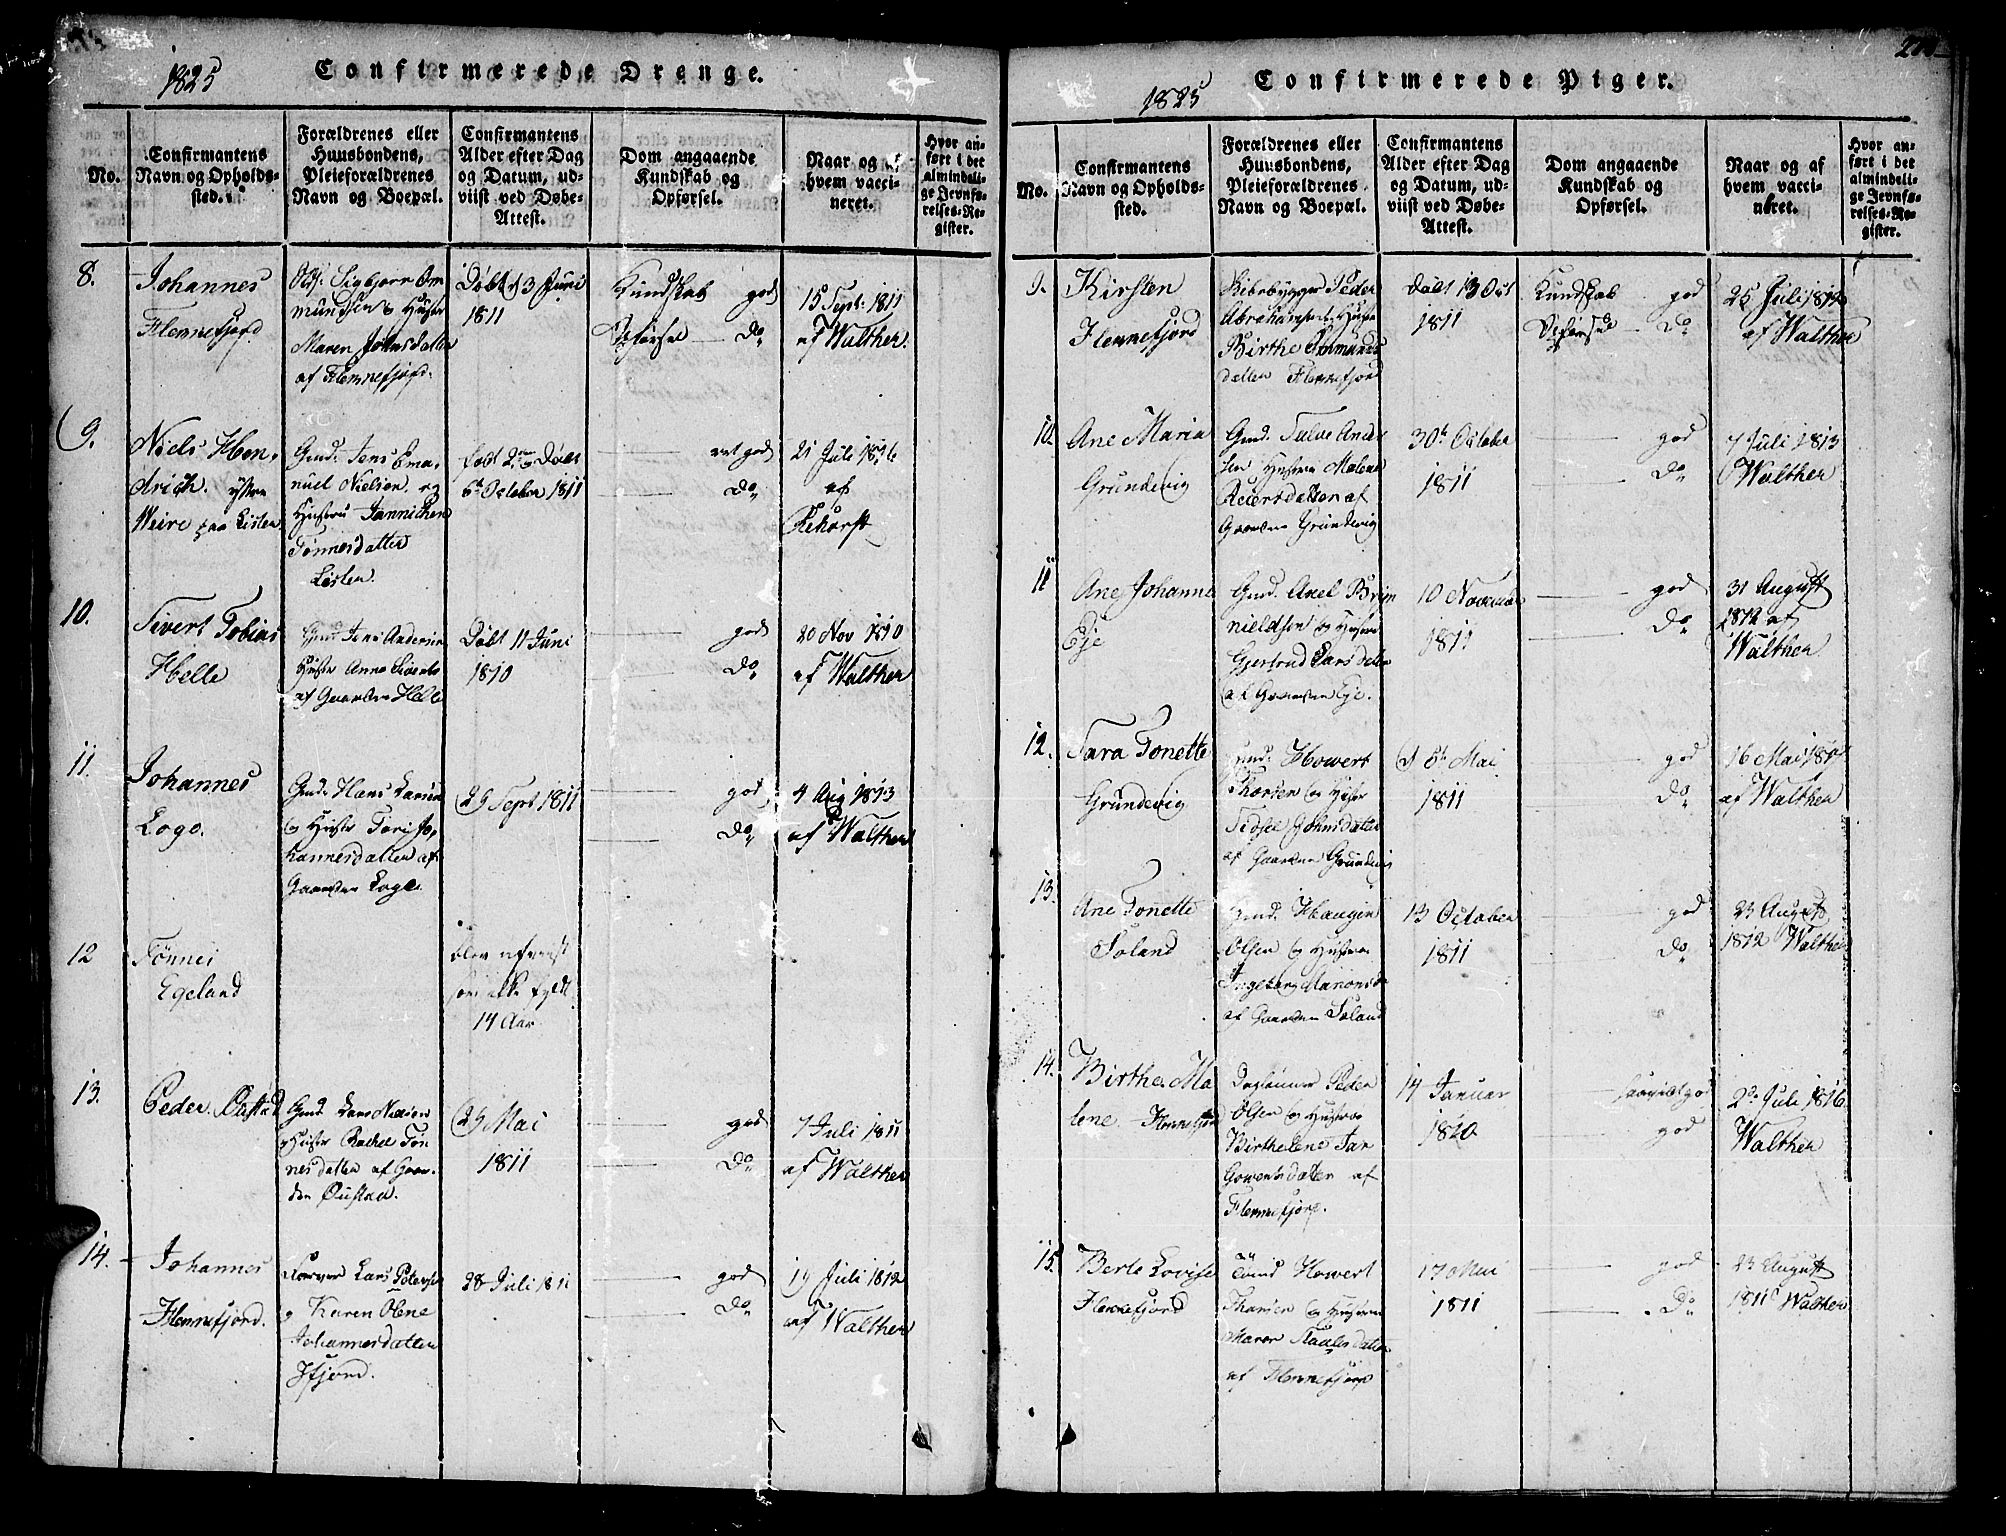 1825
Confirmerede Drenge.
No.
Confirmantens
Navn og Opholds-
sted.
Forældrenes eller
Huusbondens,
Pleieforældrenes
Navn og Boepæl.
Confirmantens
Alder efter Dag
og Datum, ud-
viist ved Døbe-
Attest.
Dom angaaende
Kundskab og
Opførsel.
Naar og af
hvem vacci-
neret.
Hvor an-
ført i det
almindeli-
ge Jevnfø-
relses-Re-
gister.
8.
Johannes
Flennefjord
Sigbjørn Om
mundsen & Hustr
Maren Johnsdatter
af Flennefjord.
Døbt d 3 Juni
1811
Kundskab god
Opførsel Do
15 Sept. 1811
af Walther.
9.
Niels Hen-
drich. ystre
Weire paa Listen
Gmd. Jens Ema-
nuel Nielsen og
Hustru Jannichen
Tønnesdatter
Listen.
født 2 Døbt
6t October 1811
god
Do
21 Juli 1816
af
Rehorst
10.
Sivert Tobias
Helle
Gmd Jens Andersen
Hustr Anne
af Gaarden Helle
Døbt 11 Juni
1810
god
Do
20 Nov 1810
af Walther
11.
Johannes
Loge.
Gmd. Hans Larsen
og Hustr Tori Jo-
hannesdatter af
Gaarden Loge
29 Sept 1811
god
Do
4 Aug 1813
af Walther
12
Tønnes
Egeland
blev afviist
som ikke fyldt
14 Aar
13.
Peder Øustad
Gmd Lars Nielsen
Hustr Rachel Tøn
nesdatter af Gaar-
den Øustad.
29 Mai
1811
god
Do
7 Juli 1811
af Walther
14.
Johannes
Flennefjord.
Farver Lars Petersen
og Karen Olene
Johannesdatter
Ifjord.
28 Juli 1811
god
Do
19 Juli 1812
af Walther
1825
Confirmerede Piger.
No.
Confirmantens
Navn og Opholds-
sted.
Forældrenes eller
Huusbondens,
Pleieforældrenes
Navn og Boepæl.
Confirmantens
Alder efter Dag
og Datum, ud-
viist ved Døbe-
Attest.
Dom angaaende
Kundskab og
Opførsel.
Naar og af
hvem vacci-
neret.
Hvor an-
ført i det
almindeli-
ge Jevnfø-
relses-Re-
gister.
9.
Kirsten
Flennefjord
Peder
Abrahamsen Hustr
Birthe Ommunds
datter Flennefjord
døbt 13 Oct
1811
Kundskab god
Opførsel Do
25 Juli 1812
af Walther
10.
Ane Maria
Grundevig
Gmd. Salve Ander
sen Hustru Malene
Reiersdatter af
Gaarden Grundevig
30t October
1811
god
Do
7 Juli 1813
Walther
11
Ane Johanne
Eje
Gmd. Axel Bryn
nieldsen og Hustr
Gjertrud Larsdatter
af Gaarden Eje.
10 November
1811
god
Do
31 August
1812 af
Walther
12.
Sara Tonette
Grundevig
Gmd. Howert
Thorsen og Hustr
Sidsel Johnsdatter
af Gaarden Grundevig
d 5t Mai
1811
god
Do
16 Mai
af Walther
13.
Ane Tonette
Søland
Gmd. Haagin
Olsen og Hustru
Ingeborg
af Gaarden Søland
13 October
1811
god
Do
23 August
1812 Walther
14.
Birthe Ma
lene Flennefjord
Peder
Olsen og Hustrue
Birthe Lene Tar
Gowertsdatter af
Flennefjord.
14 Januar
1810
god
2 Juli 1816
Walther
15.
Berte Lovise
Flennefjord
Howert
Tharsen og Hustrue
Maren Staalesdatter
af Flennefjord
17 Mai
1811
god
Do
23 August
1811 Walther